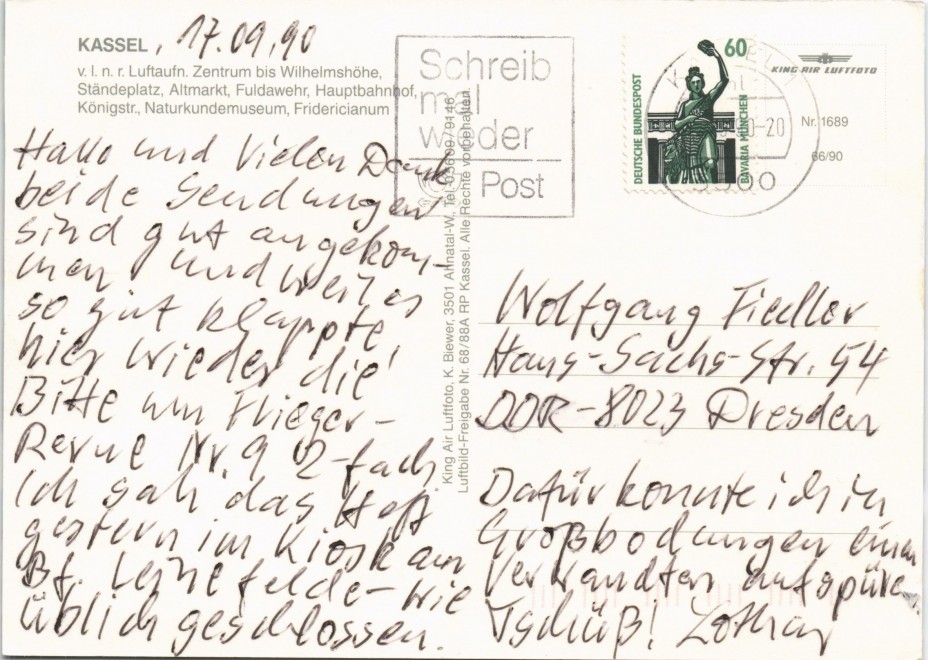 KASSEL, 17.09.90
v. l. n. r. Luftaufn. Zentrum bis Wilhelmshöhe,
Ständeplatz, Altmarkt, Fuldawehr, Hauptbahnhof,
Königstr., Naturkundemuseum, Fridericianum
Hallo und Vielen Dank
beide Sendungen
sind gut angekom-
men und weil es
so gut klappte,
hier wieder die
Bitte um Flieger-
Revue Nr. 9 2-fach
Ich sah das Heft
gestern im Kiosk am
Bf. Leinefelde - wie
üblich geschlossen.
Schreib
mal
wieder
Post
King Air Luftfoto, K. Biewer, 3501 Ahnatal-W., Tel. 05609/9146
Luftbild-Freigabe Nr. 68/88A RP Kassel. Alle Rechte vorbehalten.
60
DEUTSCHE BUNDESPOST
BAVARIA MÜNCHEN
-20
KING AIR LUFTFOTO
Nr. 1689
66/90
Wolfgang Fiedler
Hans-Sachs-Str. 54
DDR-8023 Dresden
Dafür konnte ich in
Großbodungen einen
Verwandten aufspüren
Tschüß! Lothar